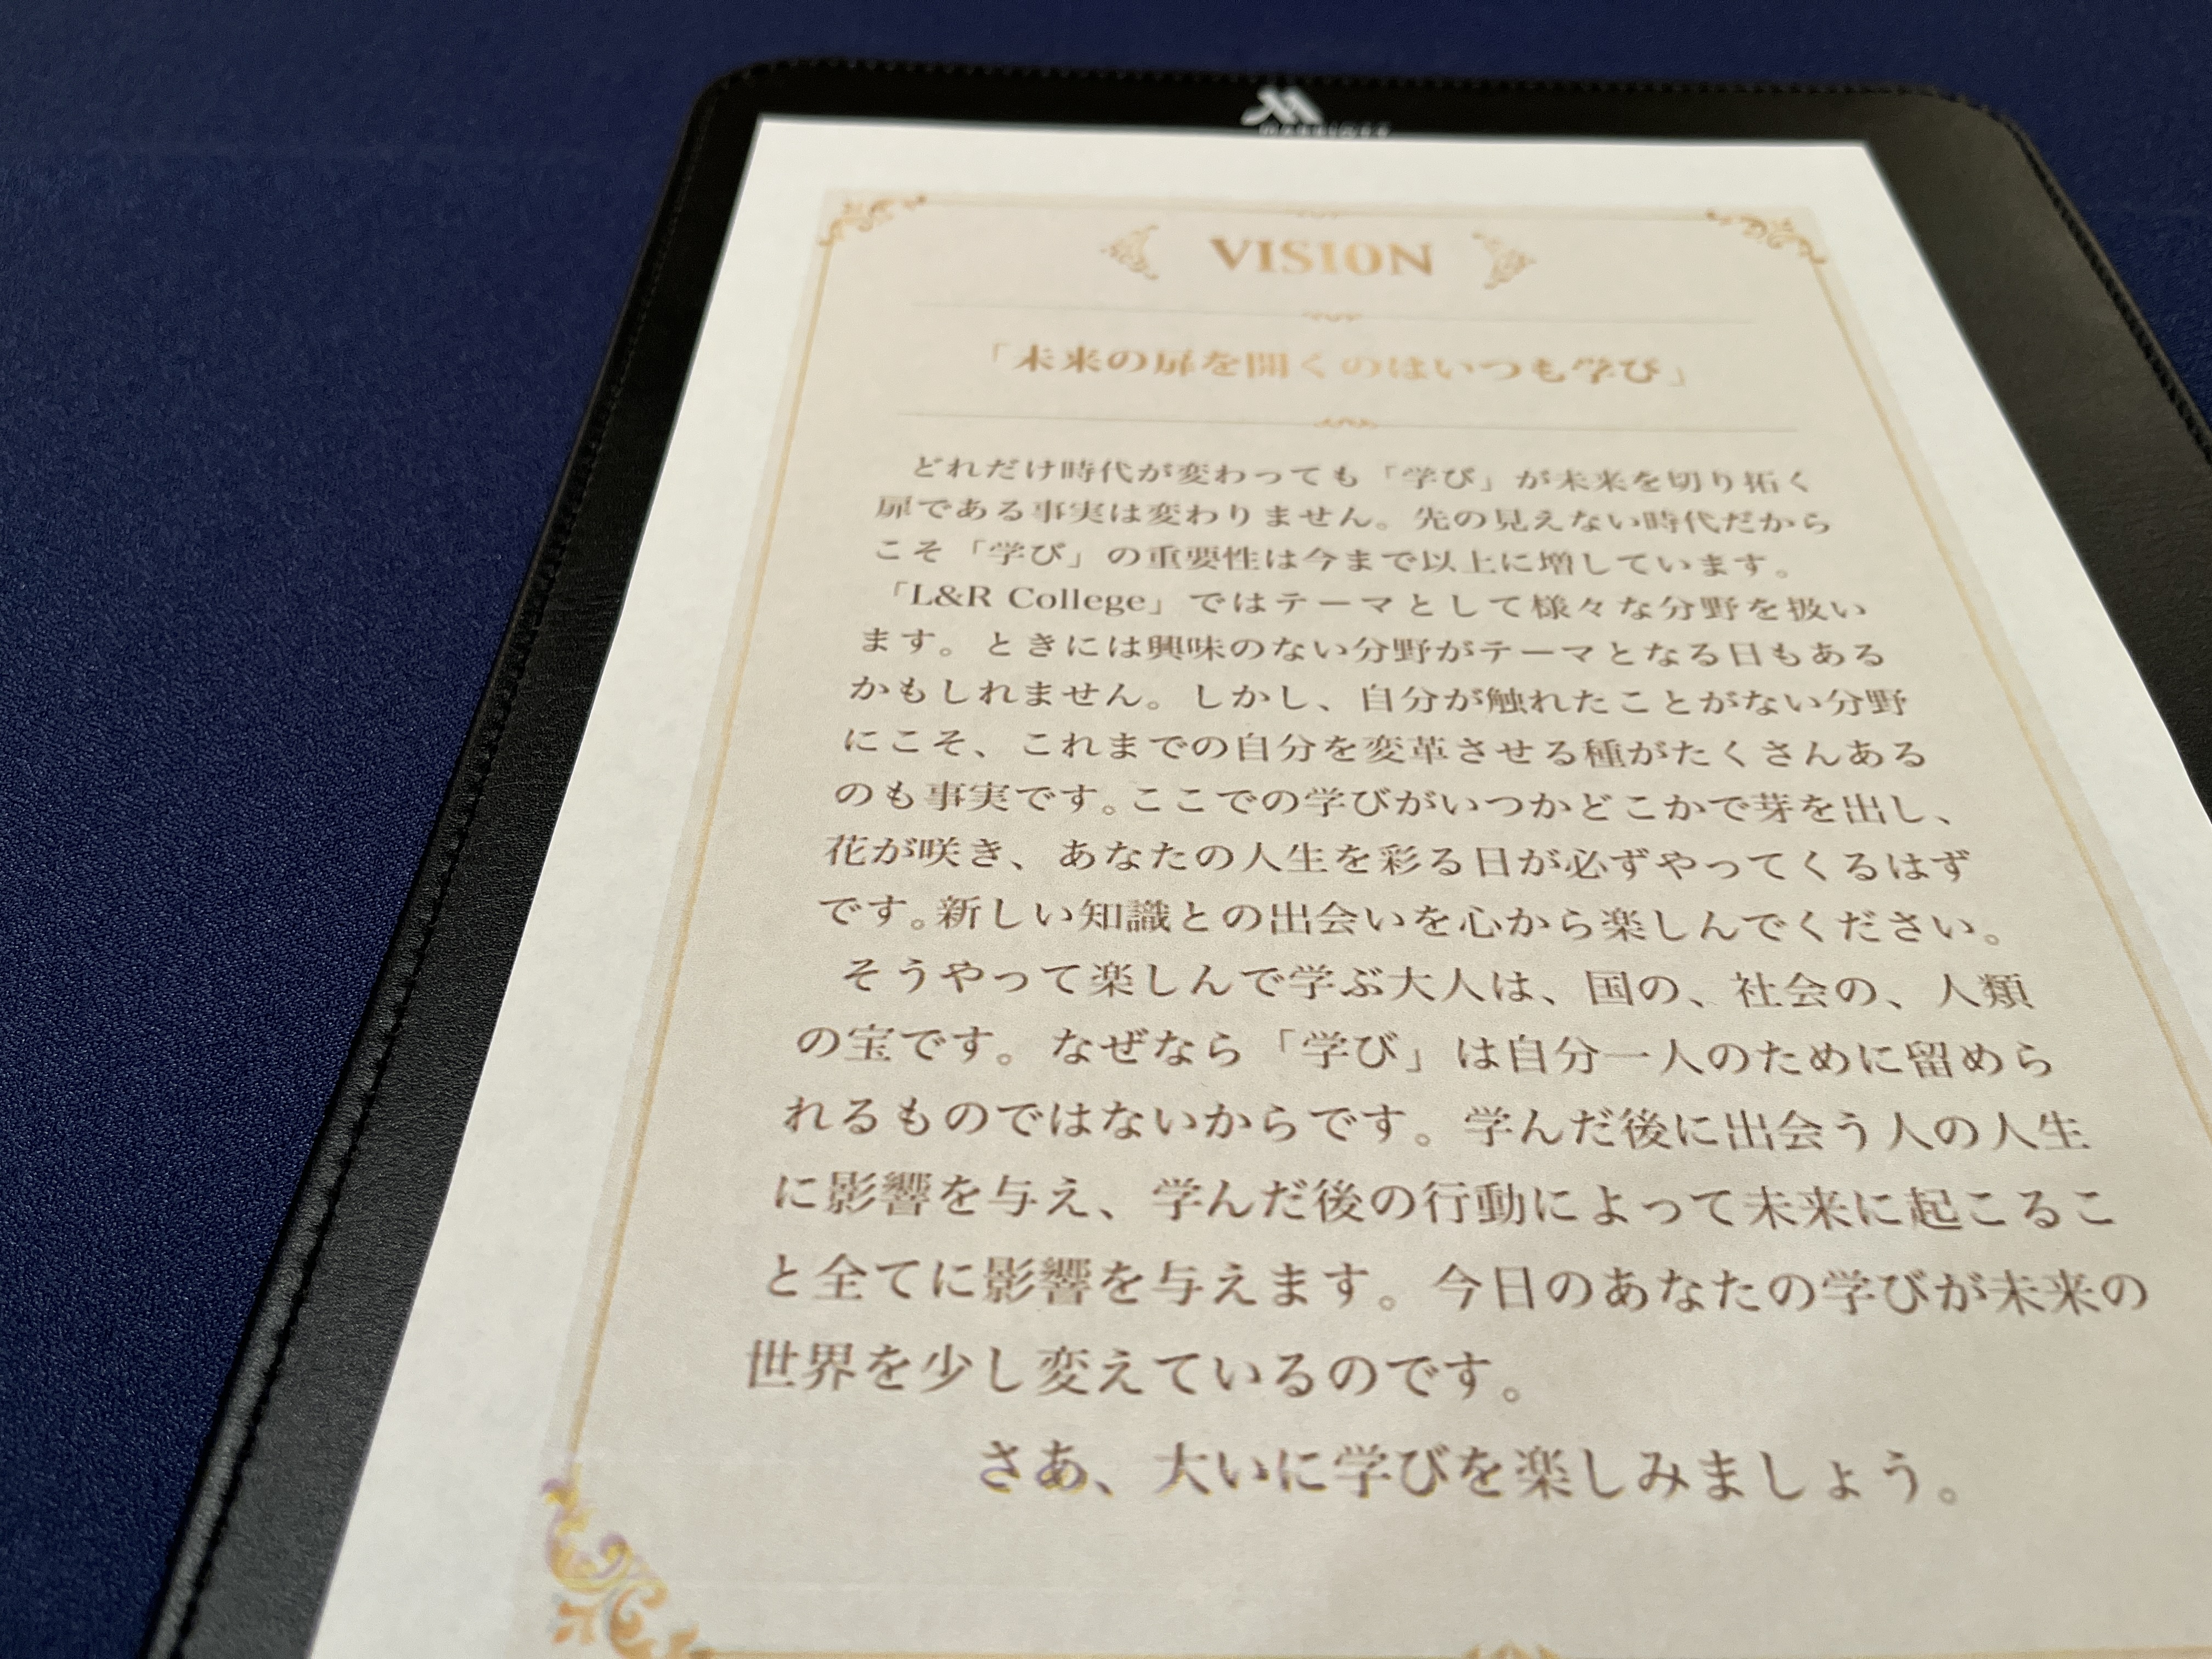 VISION
「未来の扉を開くのはいつも学び」
どれだけ時代が変わっても「学び」が未来を切り拓く
扉である事実は変わりません。先の見えない時代だから
こそ「学び」の重要性は今まで以上に増しています。
「L&R College」ではテーマとして様々な分野を扱い
ます。ときには興味のない分野がテーマとなる日もある
かもしれません。しかし、自分が触れたことがない分野
にこそ、これまでの自分を変革させる種がたくさんある
のも事実です。ここでの学びがいつかどこかで芽を出し、
花が咲き、あなたの人生を彩る日が必ずやってくるはず
です。新しい知識との出会いを心から楽しんでください。
そうやって楽しんで学ぶ大人は、国の、社会の、人類
の宝です。なぜなら「学び」は自分一人のために留めら
れるものではないからです。学んだ後に出会う人の人生
に影響を与え、学んだ後の行動によって未来に起こるこ
と全てに影響を与えます。今日のあなたの学びが未来の
世界を少し変えているのです。
さあ、大いに学びを楽しみましょう。